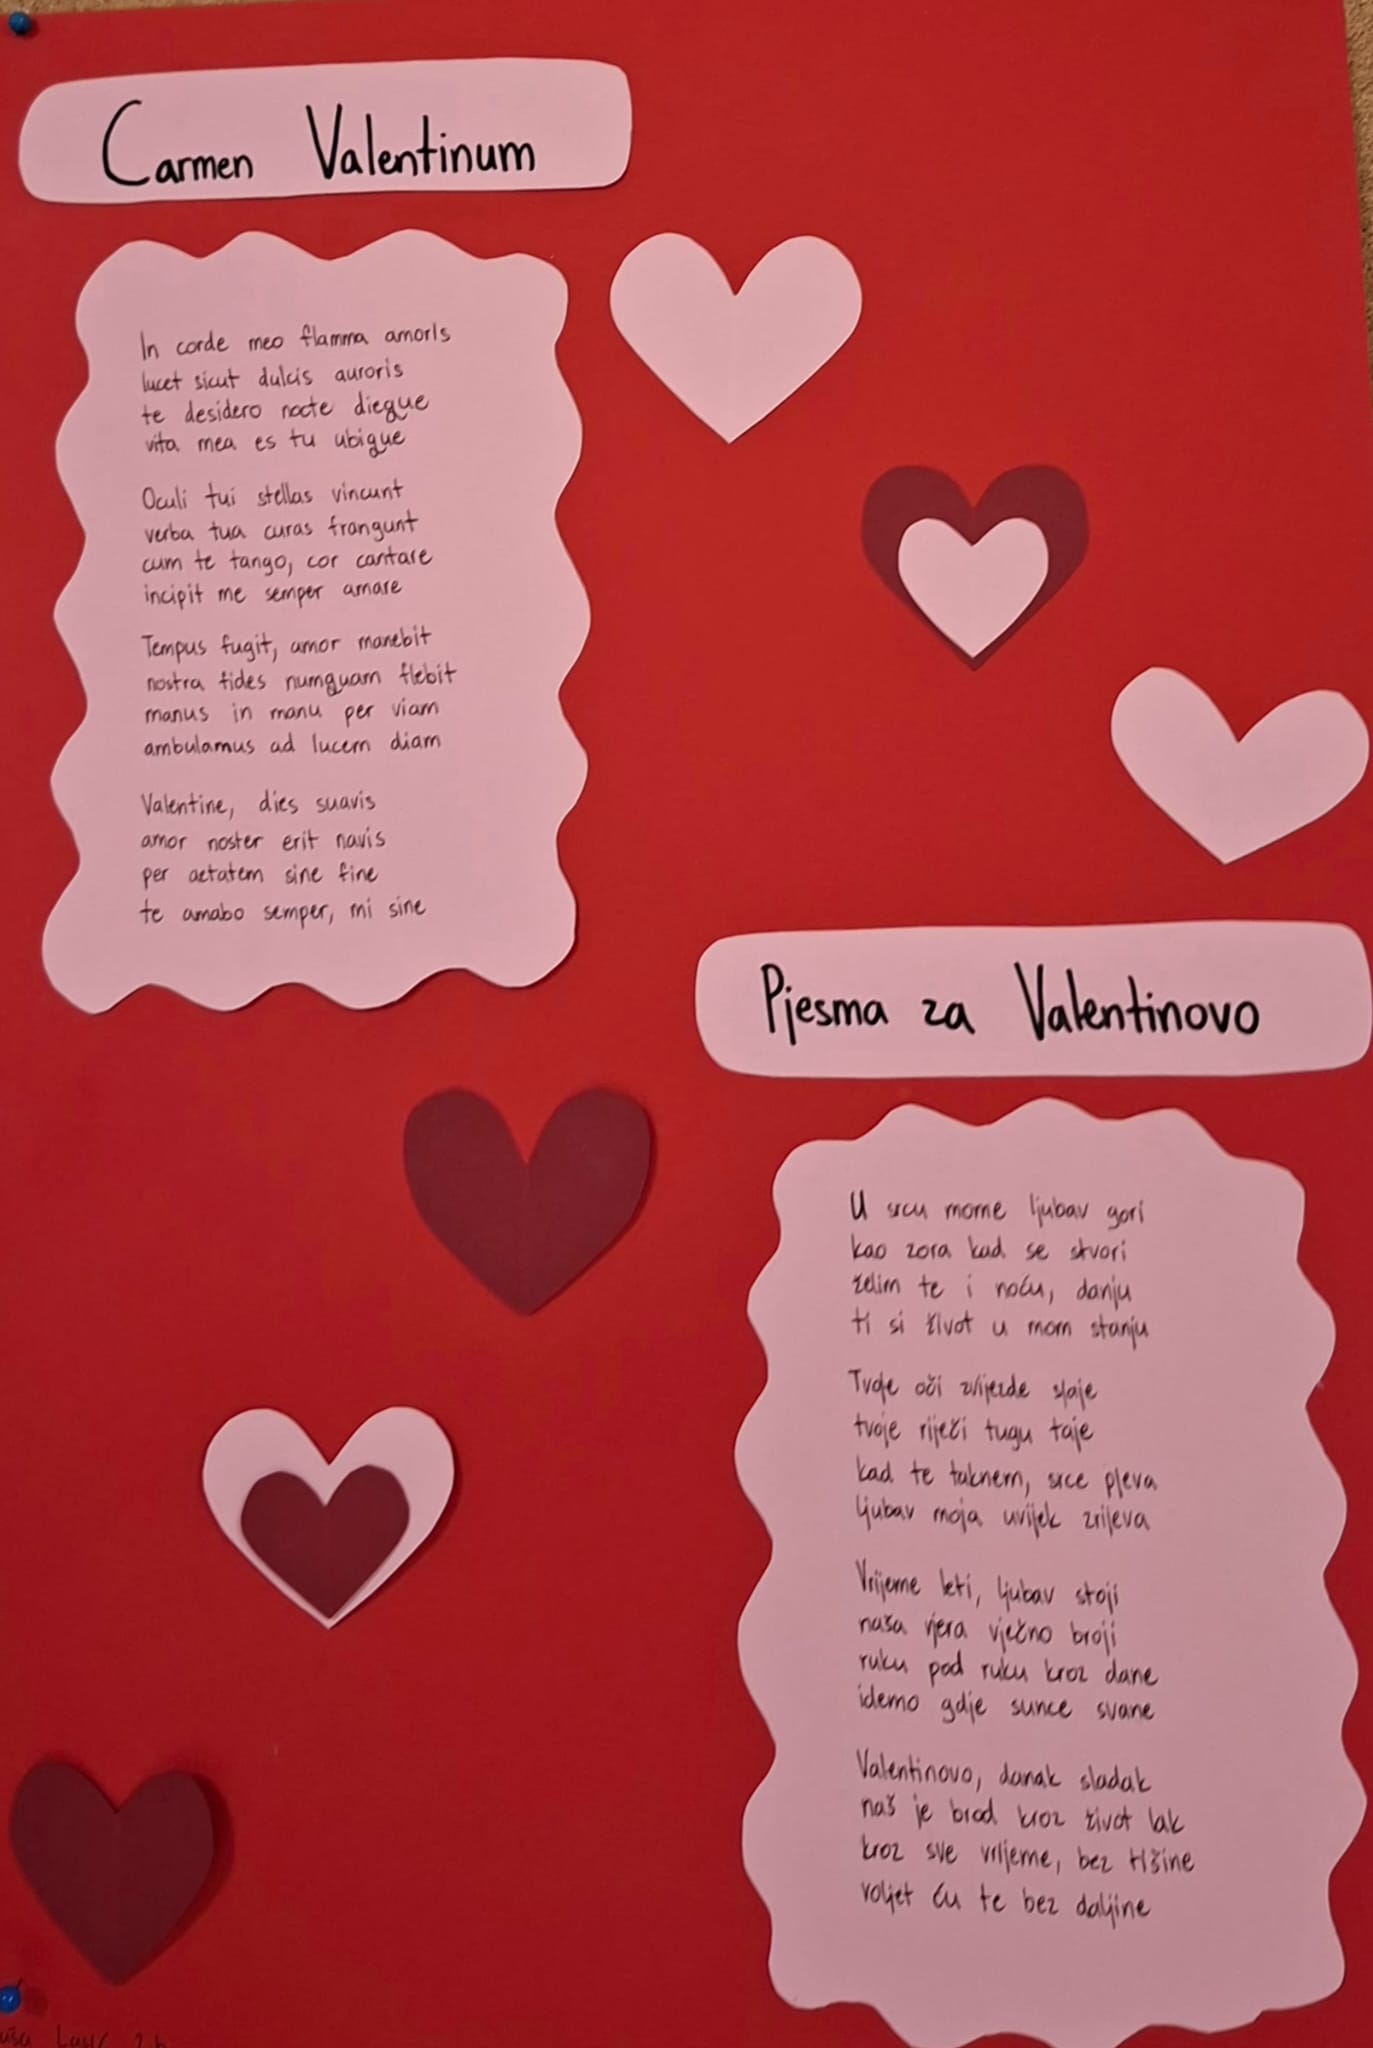 Carmen Valentinum
In corde meo flamma amoris
lucet sicut dulcis auroris
te desidero nocte dieque
vita mea es tu ubique
Oculi tui stellas vincunt
verba tua curas frangunt
cum te tango, cor cantare
incipit me semper amare
Tempus fugit, amor manebit
nostra fides numquam flebit
manus in manu per viam
ambulamus ad lucem diam
Valentine, dies suavis
amor noster erit navis
per aetatem sine fine
te amabo semper, mi sine
Pjesma za Valentinovo
U srcu mome ljubav gori
kao zora kad se stvori
želim te i noću, danju
ti si život u mom stanju
Tvoje oči zvijezde sjaje
tvoje riječi tugu taje
kad te taknem, srce pjeva
ljubav moja uvijek zrijeva
Vrijeme leti, ljubav stoji
naša vjera vječno broji
ruku pod ruku kroz dane
idemo gdje sunce svane
Valentinovo, danak sladak
naš je brod kroz život lak
kroz sve vrijeme, bez tišine
voljet ću te bez daljine